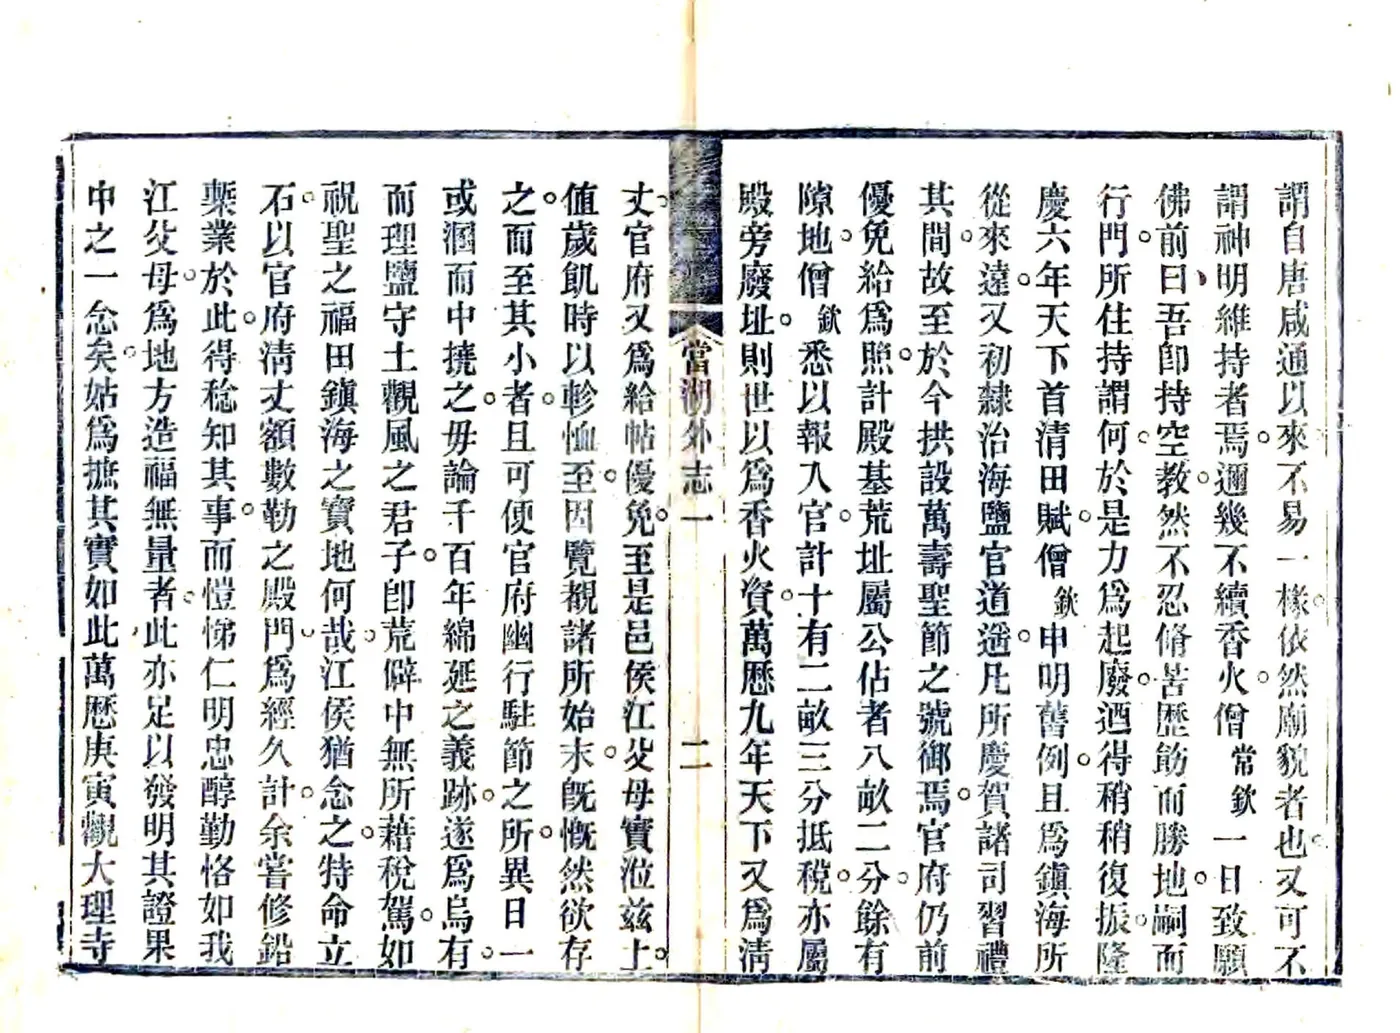 謂自唐咸通以來不易一椽依然廟貌者也又可不
謂神明維持者焉邇幾不續香火僧常欽一日致願
佛前曰吾卽持空教然不忍脩苦歷飭而勝地嗣而
行門所住持謂何於是力爲起廢迺得稍稍復振隆
慶六年天下首清田賦僧欽申明舊例且爲鎭海所
從來遠又初隸治海鹽官道遞凡所慶賀諸司習禮
其間故至於今拱設萬壽聖節之號御焉官府仍前
優免給爲照計殿基荒址屬公佔者八畝二分餘有
隙地僧欽悉以報入官計十有二畝三分抵稅亦屬
殿旁廢址則世以爲香火資萬歷九年天下又爲淸
當湖外志一
二
丈官府又爲給帖優免至是邑侯江父母實涖茲上
値歲飢時以軫恤至因覽覩諸所始末旣慨然欲存
之而至其小者且可便官府幽行駐節之所異日一
或溷而中撓之毋論千百年綿延之義跡遂爲烏有
而理鹽守土觀風之君子卽荒僻中無所藉稅駕如
祝聖之福田鎭海之寶地何哉江侯猶念之特命立
石以官府淸丈額數勒之殿門爲經久計余嘗修鉛
槧業於此得稔知其事而愷悌仁明忠醇勤恪如我
江父母爲地方造福無量者此亦足以發明其證果
中之一念矣姑爲摭其實如此萬歷庚寅覯大理寺